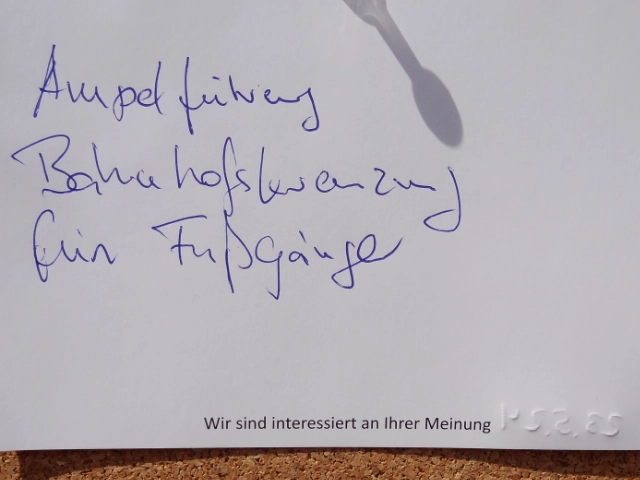 Ampelführung
Bahnhofskreuzung
für Fußgänger
Wir sind interessiert an Ihrer Meinung